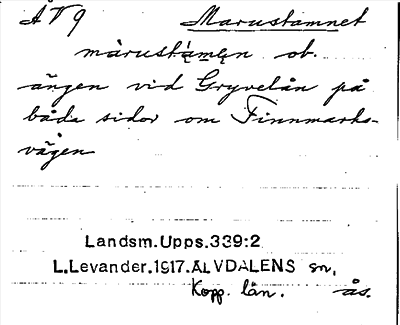 ÅV9 Marustamnet
mårustàmęn ob.
ängen vid Gryvelån på
båda sidor om Finnmarks-
vägen
Landsm.Upps.339:2
L.Levander.1917.ÄLVDALENS sn,
Kopp. län. ås.